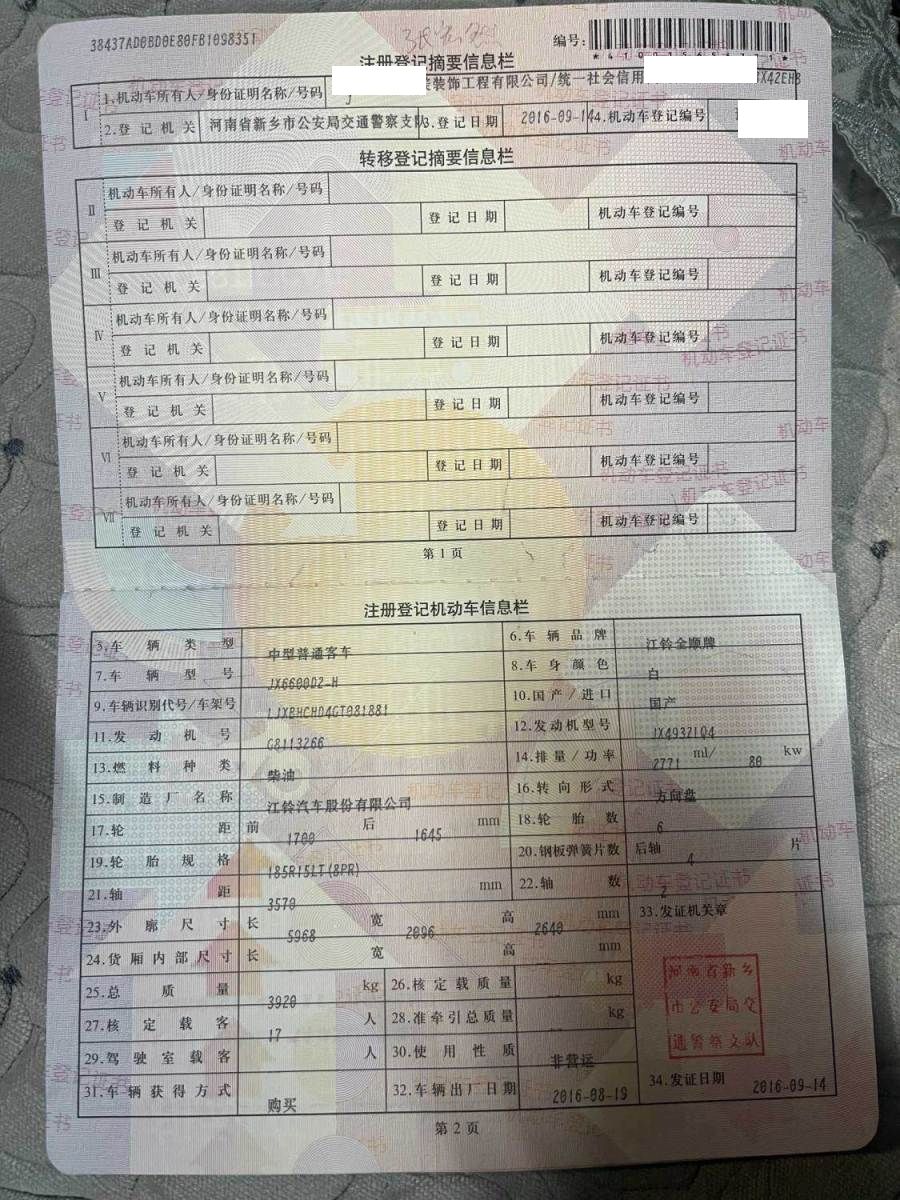 38437AD0BD0E80FB1098351
编号:
注册登记摘要信息栏
I 1.机动车所有人/身份证明名称/号码 装饰工程有限公司/统一社会信用
2.登记机关 河南省新乡市公安局交通警察支队 3.登记日期 2016-09-14 4.机动车登记编号
转移登记摘要信息栏
II 机动车所有人/身份证明名称/号码
登记机关 登记日期 机动车登记编号
III 机动车所有人/身份证明名称/号码
登记机关 登记日期 机动车登记编号
IV 机动车所有人/身份证明名称/号码
登记机关 登记日期 机动车登记编号
V 机动车所有人/身份证明名称/号码
登记机关 登记日期 机动车登记编号
VI 机动车所有人/身份证明名称/号码
登记机关 登记日期 机动车登记编号
VII 机动车所有人/身份证明名称/号码
登记机关 登记日期 机动车登记编号
第1页
注册登记机动车信息栏
5.车辆类型 中型普通客车 6.车辆品牌 江铃全顺牌
7.车辆型号 JX6600D2-H 8.车身颜色 白
9.车辆识别代号/车架号 LJXBHCHD4GT081881 10.国产/进口 国产
11.发动机号 G8113266 12.发动机型号 JX493ZLQ4
13.燃料种类 柴油 14.排量/功率 2771 ml/ 80 kw
15.制造厂名称 江铃汽车股份有限公司 16.转向形式 方向盘
17.轮距 前 1700 后 1645 mm 18.轮胎数 6
19.轮胎规格 185R15LT(8PR) 20.钢板弹簧片数 后轴 4 片
21.轴距 3570 mm 22.轴数 2
23.外廓尺寸 长 5968 宽 2096 高 2640 mm 33.发证机关章
24.货厢内部尺寸 长 宽 高 mm
25.总质量 3920 kg 26.核定载质量 kg
27.核定载客 17 人 28.准牵引总质量 kg
29.驾驶室载客 人 30.使用性质 非营运
31.车辆获得方式 购买 32.车辆出厂日期 2016-08-19 34.发证日期 2016-09-14
河南省新乡
市公安局交
通警察支队
第2页